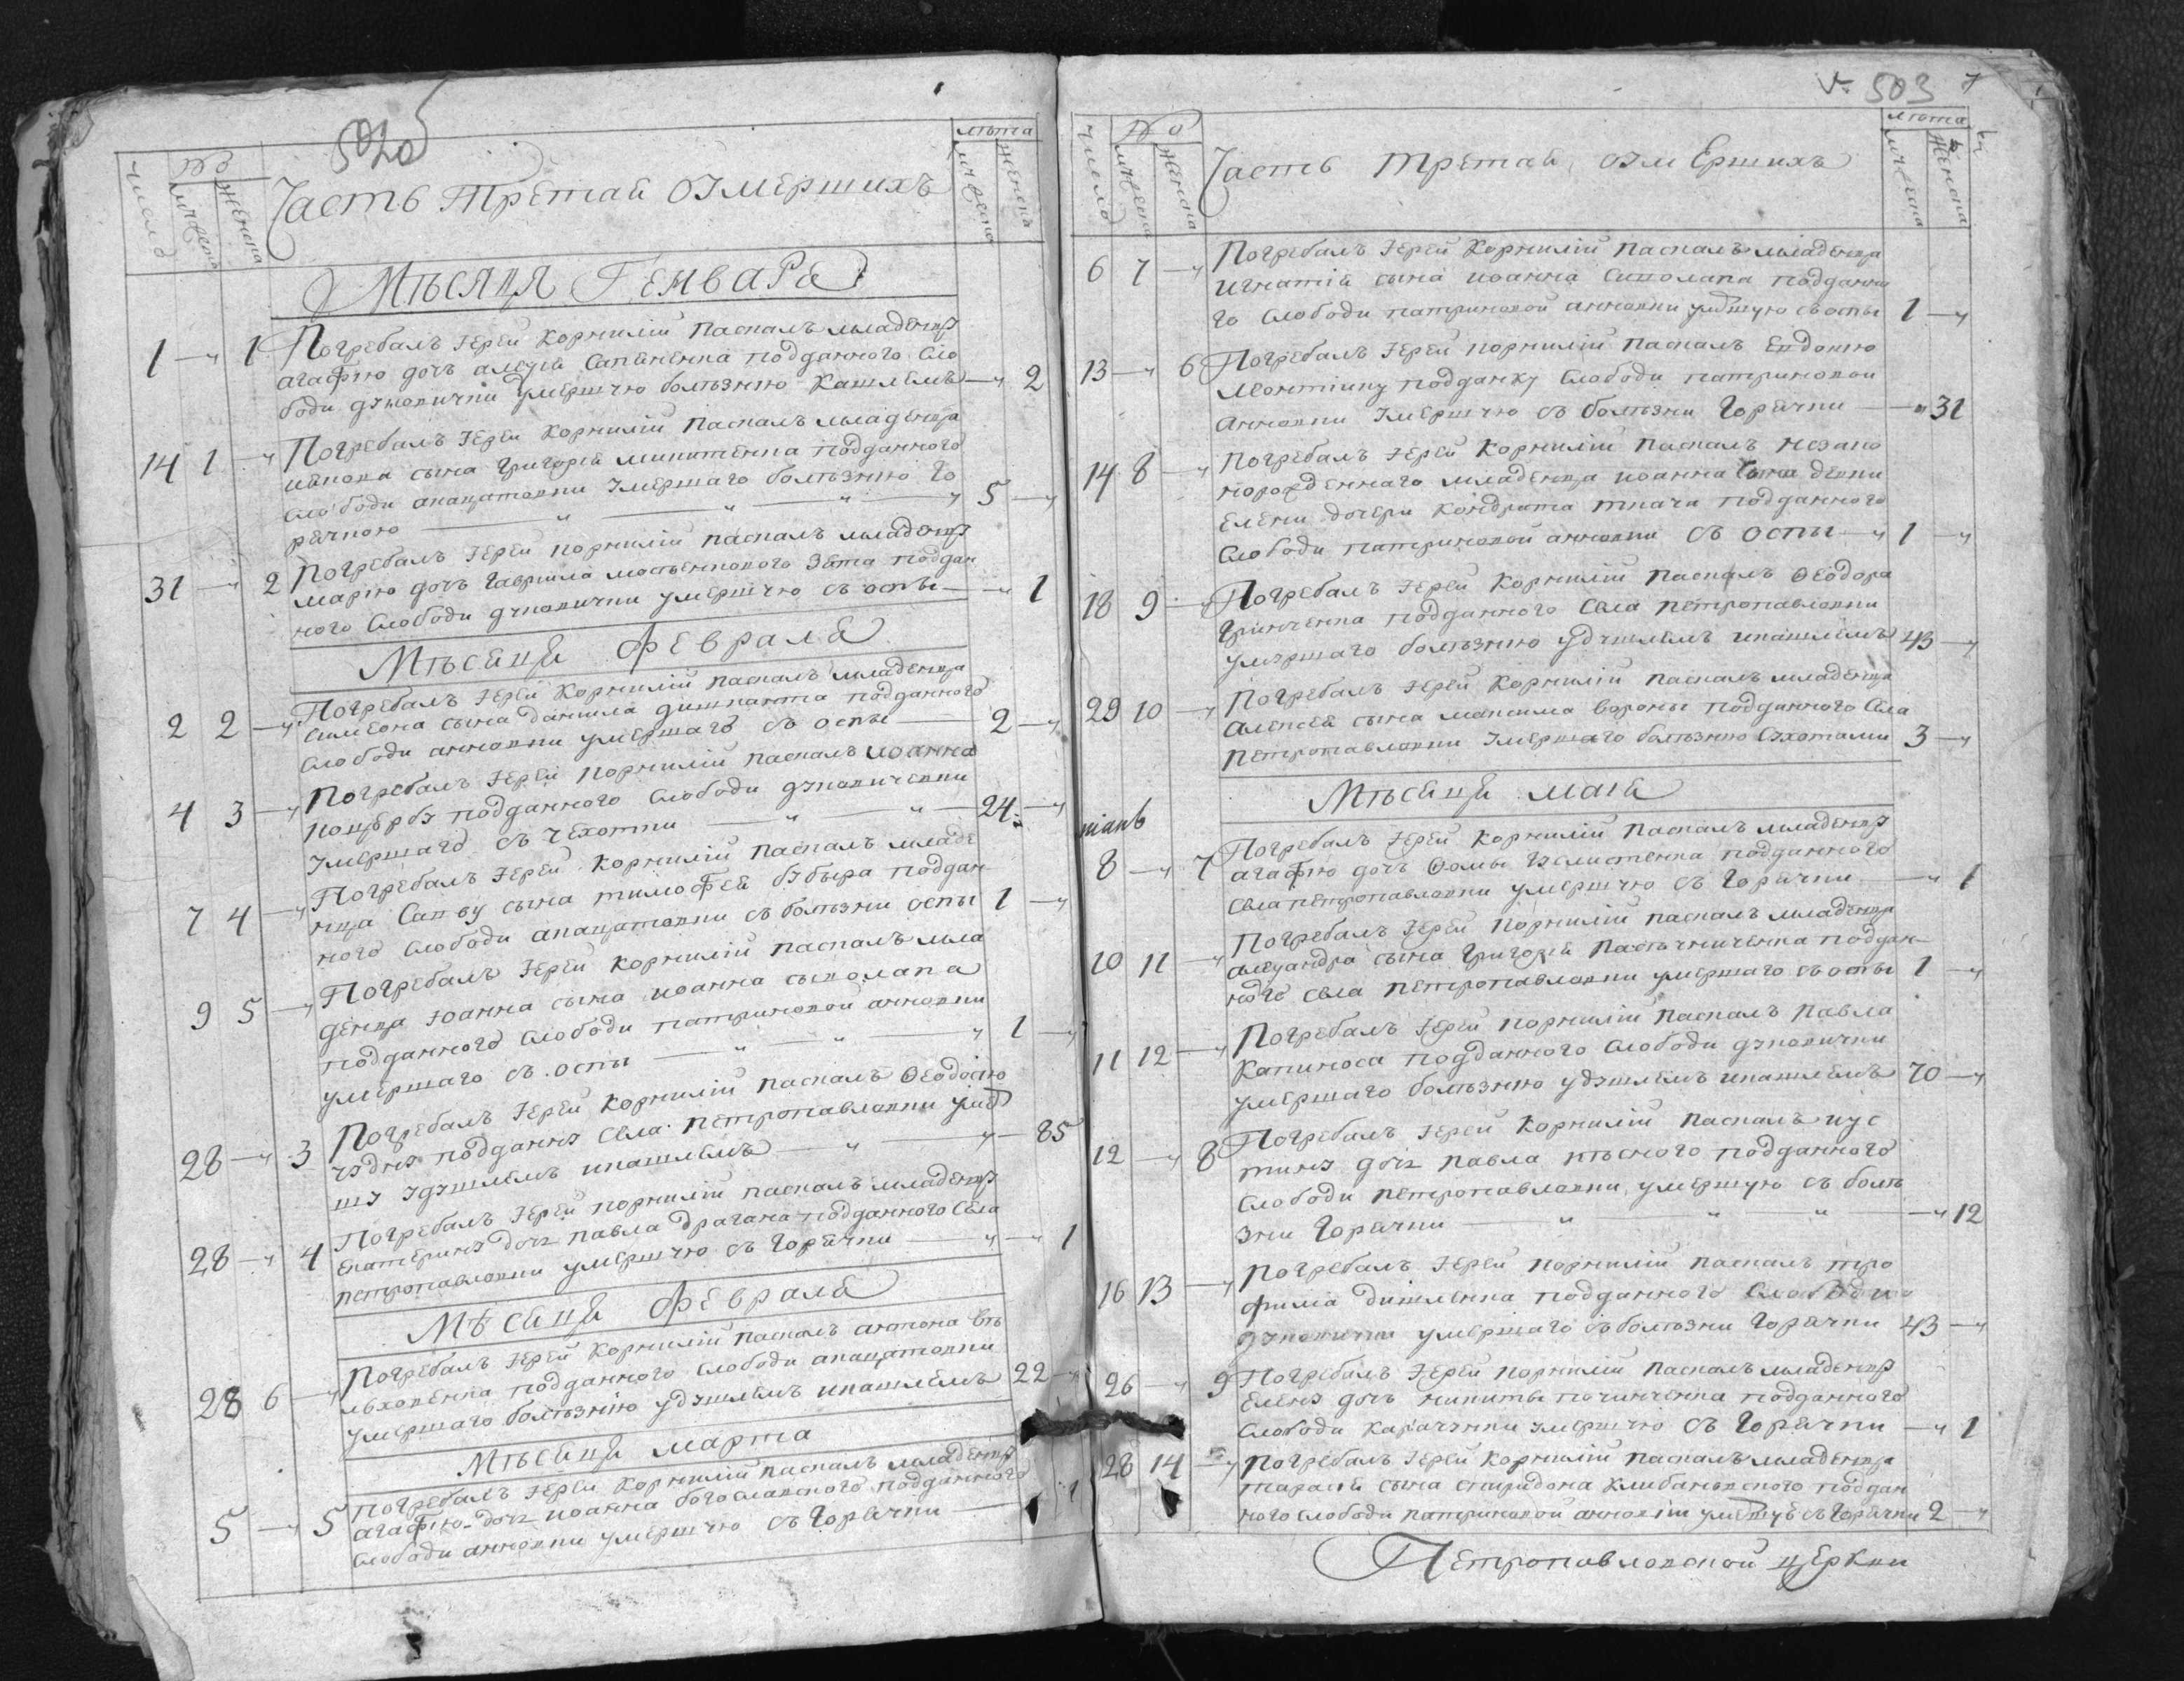 502 об
число № мужеска женска Часть Третая О Умершихъ лѣта мужеска женска
Мѣсяця Генваря
1 — 1 Погребалъ Іерей Корнилій Паскалъ младенца
агафию дочь алеѯѣя Сапененка подданного сло
боди дуковички умершую болѣзнию Кашлемъ — 2
14 1 — Погребалъ Іерей Корнилій Паскалъ младенца
сына григорея микитенка подданного
слободи апанатовки Умершаго болѣзнию го
рячкою 5 —
31 — 2 Погребалъ Іерей корнилій паскалъ младенца
марию дочь гаврила зятя поддан
ного слободи дуковички умершую съ оспы — 1
Мѣсяця Февраля
2 2 — Погребалъ Іерей Корнилій паскалъ младенца
симеона сына данила подданного
слободи анновки умершаго съ оспы 2 —
4 3 — Погребалъ Іерей корнилій паскалъ иоанна
коцюрбу подданного слободи дуковички
умершаго съ чехотки 24 —
7 4 — Погребалъ Іерей Корнилій паскалъ младе
нца Савву сына тимофея бубыра поддан
ного слободи апанатовки съ болѣзни оспы 1 —
9 5 — Погребалъ Іерей Корнилій паскалъ мла
денца Іоанна сына иоанна сыволапа
подданного слободи катриновой анновки
умершаго съ оспы 1 —
28 — 3 Погребалъ Іерей Корнилій паскалъ Ѳеодосию
подданну села петропавловки умер
шу удушлемъ икашлемъ — 85
28 — 4 Погребалъ Іерей корнилій паскалъ младенца
екатерину дочь павла драгана подданного села
петропавловки умершую съ горячки — 1
Мѣсяця Февраля
28 6 — Погребалъ Іерей Корнилій паскалъ антона
подданного слободи апанатовки
умершаго болѣзнию удушлемъ икашлемъ 22 —
Мѣсяця марта
5 — 5 погребалъ Іерей Корнилій паскалъ младенца
агафию дочь иоанна богославского подданного
слободи анновки умершую съ горячки 1
503 7
число № мужеска женска Часть Третая О Умершихъ лѣта мужеска женска
6 7 — Погребалъ Іерей Корнилій паскалъ младенца
игнатія сына иоанна Сиволапа подданно
го слободи катриновой анновки умершую съ оспы 1 —
13 — 6 Погребалъ Іерей корнилій паскалъ Евдокию
леонтіину подданку слободи катриновой
анновки Умершую съ болѣзни горячки — 31
14 8 — погребалъ Іерей Корнилій паскалъ незако
норожденнаго младенца иоанна сына девки
елени дочери кондрата ткача подданного
слободи катриновой анновки съ оспы — 1 —
18 9 — Погребалъ Іерей Корнилій паскалъ Ѳеодора
гринченка подданного села петропавловки
умершаго болѣзнию удушлемъ икашлемъ 43 —
29 10 — Погребалъ Іерей Корнилій паскалъ младенца
алексея сына максима вороны подданного села
петропавловки Умершаго болѣзнию сухотами 3 —
Мѣсяця мая
8 — 7 Погребалъ Іерей Корнилій паскалъ младенца
агафию дочь Ѳомы подданного
села петропавловки умершую съ горячки — 1
10 11 — погребалъ Іерей корнилій паскалъ младенца
алеѯандра сына григорея пасѣчниченка поддан
ного села петропавловки умершаго съ оспы 1 —
11 12 — Погребалъ Іерей корнилій паскалъ павла
капиноса подданного слободи дуковички
умершаго болѣзнию удушлемъ икашлемъ 70 —
12 — 8 Погребалъ Іерей Корнилій паскалъ иус
тину дочь павла подданного
слободи петропавловки умершую съ болѣ
зни горячки — 12
16 13 — погребалъ Іерей корнилій паскалъ тро
фима подданного слободи
дуковички умершаго съ болѣзни горячки 43 —
26 — 9 Погребалъ Іерей корнилій паскалъ младенца
елену дочь никиты починченка подданного
слободи карачунки умершую съ горячки — 1
28 14 — погребалъ Іерей Корнилій паскалъ младенца
тарасия сына спиридона поддан
ного слободи катриновой анновки съ горячки 2 —
Петропавловской церкви